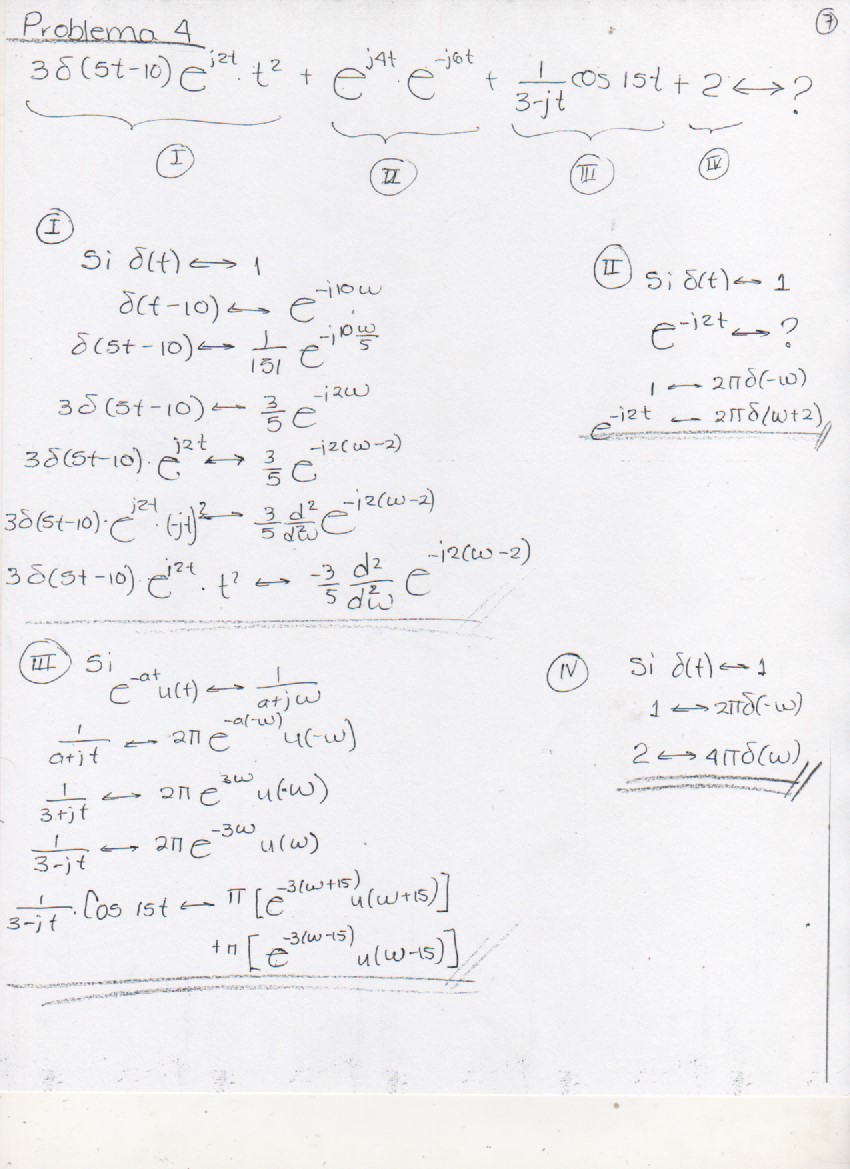 Problema 4
7
3δ(5t-10) e^{j2t} · t² + e^{j4t} · e^{-j6t} + 1/(3-jt) cos 15t + 2 ↔ ?
I II III IV
I
Si δ(t) ↔ 1
δ(t-10) ↔ e^{-j10ω}
δ(5t-10) ↔ 1/|5| e^{-j10 ω/5}
3δ(5t-10) ↔ 3/5 e^{-j2ω}
3δ(5t-10) · e^{j2t} ↔ 3/5 e^{-j2(ω-2)}
3δ(5t-10) · e^{j2t} · (-jt)² ↔ 3/5 d²/d²ω e^{-j2(ω-2)}
3δ(5t-10) · e^{j2t} · t² ↔ -3/5 d²/dω² e^{-j2(ω-2)}
II
Si δ(t) ↔ 1
e^{-j2t} ↔ ?
1 ↔ 2πδ(-ω)
e^{-j2t} ↔ 2πδ(ω+2)
III
Si
e^{-at} u(t) ↔ 1/(a+jω)
1/(a+jt) ↔ 2π e^{-a(-ω)} u(-ω)
1/(3+jt) ↔ 2π e^{3ω} u(-ω)
1/(3-jt) ↔ 2π e^{-3ω} u(ω)
1/(3-jt) · Cos 15t ↔ π [e^{-3(ω+15)} u(ω+15)]
+π [e^{-3(ω-15)} u(ω-15)]
IV
Si δ(t) ↔ 1
1 ↔ 2πδ(-ω)
2 ↔ 4πδ(ω)